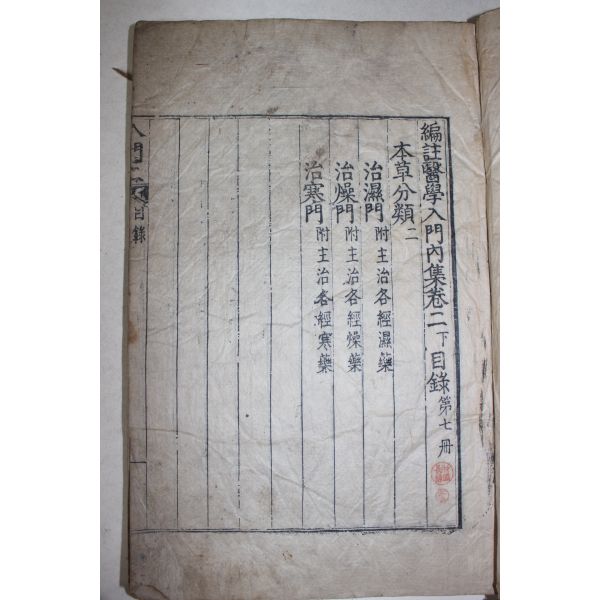 編註醫學入門內集卷二下目錄 第七册
本草分類二
治濕門 附主治各經濕藥
治燥門 附主治各經燥藥
治寒門 附主治各經寒藥
入門 目錄